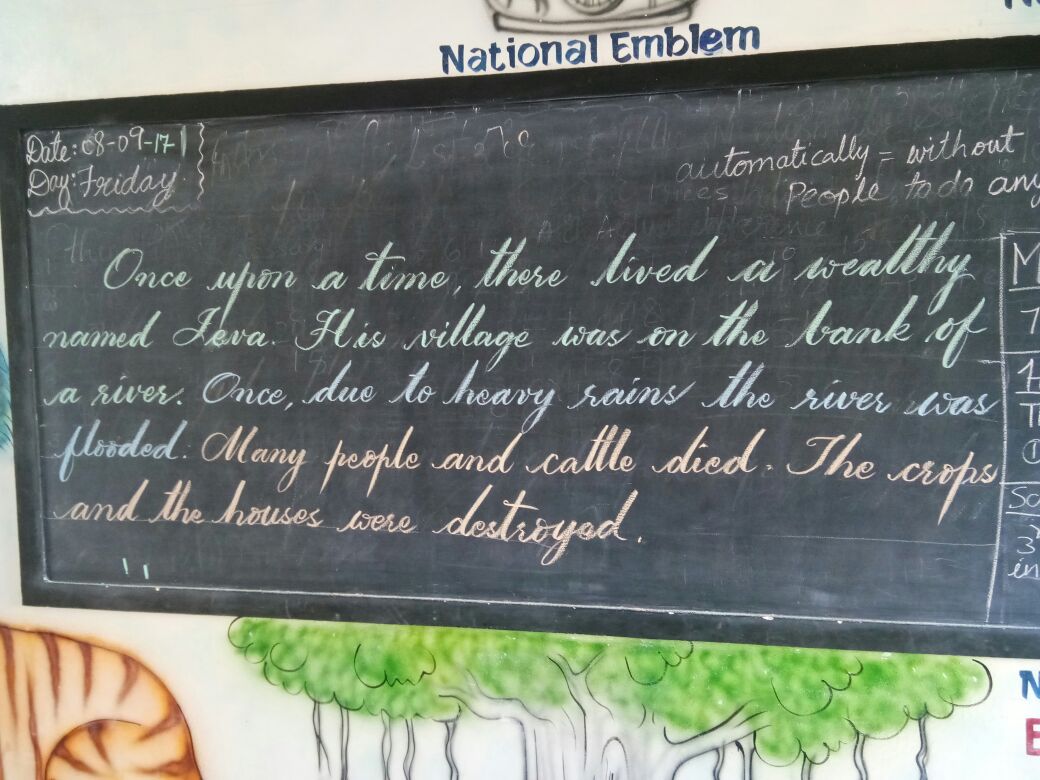 National Emblem
Date: 08-09-17
Day: Friday
automatically = without
People to do any
Once upon a time, there lived a wealthy
named Jeva. His village was on the bank of
a river. Once, due to heavy rains the river was
flooded. Many people and cattle died. The crops
and the houses were destroyed.